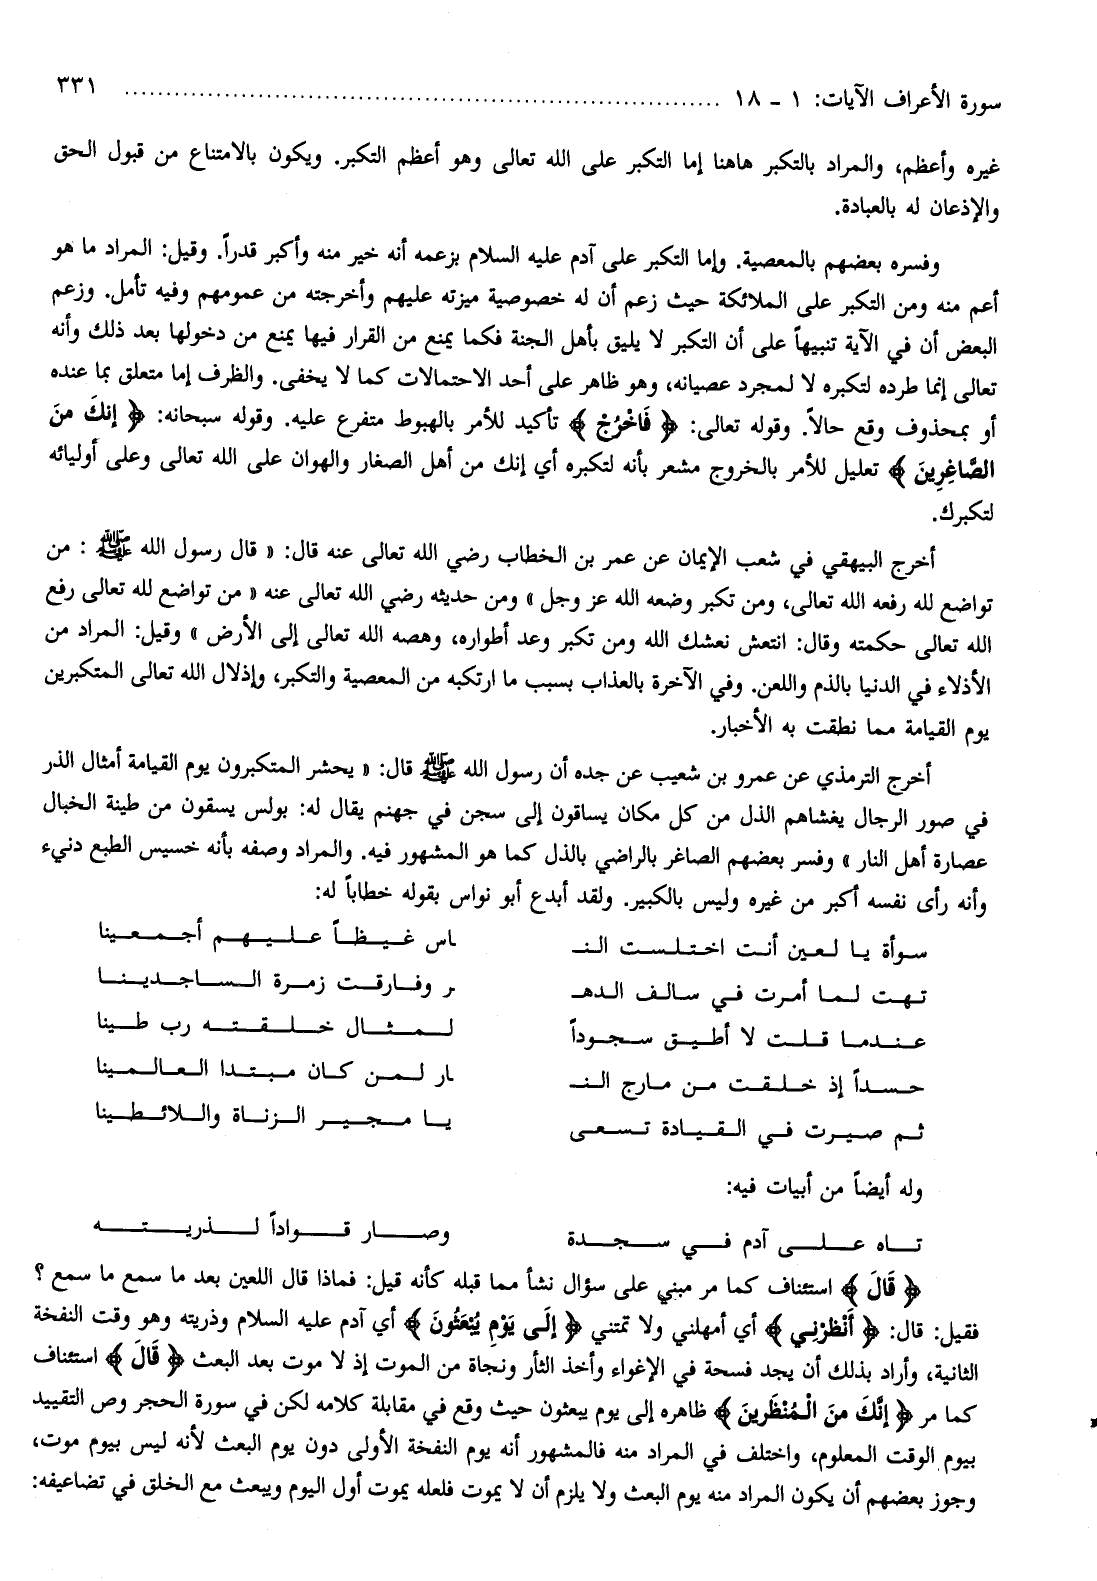 سورة الأعراف الآيات: ١ - ١٨ ........................................ ٣٣١
غيره وأعظم، والمراد بالتكبر هاهنا إما التكبر على الله تعالى وهو أعظم التكبر. ويكون بالامتناع من قبول الحق
والإذعان له بالعبادة.
وفسره بعضهم بالمعصية. وإما التكبر على آدم عليه السلام بزعمه أنه خير منه وأكبر قدراً. وقيل: المراد ما هو
أعم منه ومن التكبر على الملائكة حيث زعم أن له خصوصية ميزته عليهم وأخرجته من عمومهم وفيه تأمل. وزعم
البعض أن في الآية تنبيهاً على أن التكبر لا يليق بأهل الجنة فكما يمنع من القرار فيها يمنع من دخولها بعد ذلك وأنه
تعالى إنما طرده لتكبره لا لمجرد عصيانه، وهو ظاهر على أحد الاحتمالات كما لا يخفى. والظرف إما متعلق بما عنده
أو بمحذوف وقع حالاً. وقوله تعالى: ﴿ فَاخْرُجْ ﴾ تأكيد للأمر بالهبوط متفرع عليه. وقوله سبحانه: ﴿ إنكَ منَ
الصَّاغِرِينَ ﴾ تعليل للأمر بالخروج مشعر بأنه لتكبره أي إنك من أهل الصغار والهوان على الله تعالى وعلى أوليائه
لتكبرك.
أخرج البيهقي في شعب الإيمان عن عمر بن الخطاب رضي الله تعالى عنه قال: « قال رسول الله ﷺ : من
تواضع لله رفعه الله تعالى، ومن تكبر وضعه الله عز وجل » ومن حديثه رضي الله تعالى عنه « من تواضع لله تعالى رفع
الله تعالى حكمته وقال: انتعش نعشك الله ومن تكبر وعد أطواره، وهصه الله تعالى إلى الأرض » وقيل: المراد من
الأذلاء في الدنيا بالذم واللعن. وفي الآخرة بالعذاب بسبب ما ارتكبه من المعصية والتكبر، وإذلال الله تعالى المتكبرين
يوم القيامة مما نطقت به الأخبار.
أخرج الترمذي عن عمرو بن شعيب عن جده أن رسول الله ﷺ قال: « يحشر المتكبرون يوم القيامة أمثال الذر
في صور الرجال يغشاهم الذل من كل مكان يساقون إلى سجن في جهنم يقال له: بولس يسقون من طينة الخبال
عصارة أهل النار » وفسر بعضهم الصاغر بالراضي بالذل كما هو المشهور فيه. والمراد وصفه بأنه خسيس الطبع دنيء
وأنه رأى نفسه أكبر من غيره وليس بالكبير. ولقد أبدع أبو نواس بقوله خطاباً له:
سوأة يا لعين أنت اختلست النـ ـاس غيظاً عليهم أجمعينا
تهت لما أمرت في سالف الدهـ ـر وفارقت زمرة الساجدينا
عندما قلت لا أطيق سجوداً لمثال خلقته رب طينا
حسداً إذ خلقت من مارج النـ ـار لمن كان مبتدا العالمينا
ثم صيرت في القيادة تسعى يا مجير الزناة واللائطينا
وله أيضاً من أبيات فيه:
تاه على آدم في سجدة وصار قواداً لذريته
﴿ قَالَ ﴾ استئناف كما مر مبني على سؤال نشأ مما قبله كأنه قيل: فماذا قال اللعين بعد ما سمع ما سمع ؟
فقيل: قال: ﴿ أَنْظرْنِي ﴾ أي أمهلني ولا تمتني ﴿ إلَى يَوْمِ يُبْعَثُونَ ﴾ أي آدم عليه السلام وذريته وهو وقت النفخة
الثانية، وأراد بذلك أن يجد فسحة في الإغواء وأخذ الثأر ونجاة من الموت إذ لا موت بعد البعث ﴿ قَالَ ﴾ استئناف
كما مر ﴿ إنَّكَ منَ الْمُنْظَرينَ ﴾ ظاهره إلى يوم يبعثون حيث وقع في مقابلة كلامه لكن في سورة الحجر وص التقييد
بيوم الوقت المعلوم، واختلف في المراد منه فالمشهور أنه يوم النفخة الأولى دون يوم البعث لأنه ليس بيوم موت،
وجوز بعضهم أن يكون المراد منه يوم البعث ولا يلزم أن لا يموت فلعله يموت أول اليوم ويبعث مع الخلق في تضاعيفه: